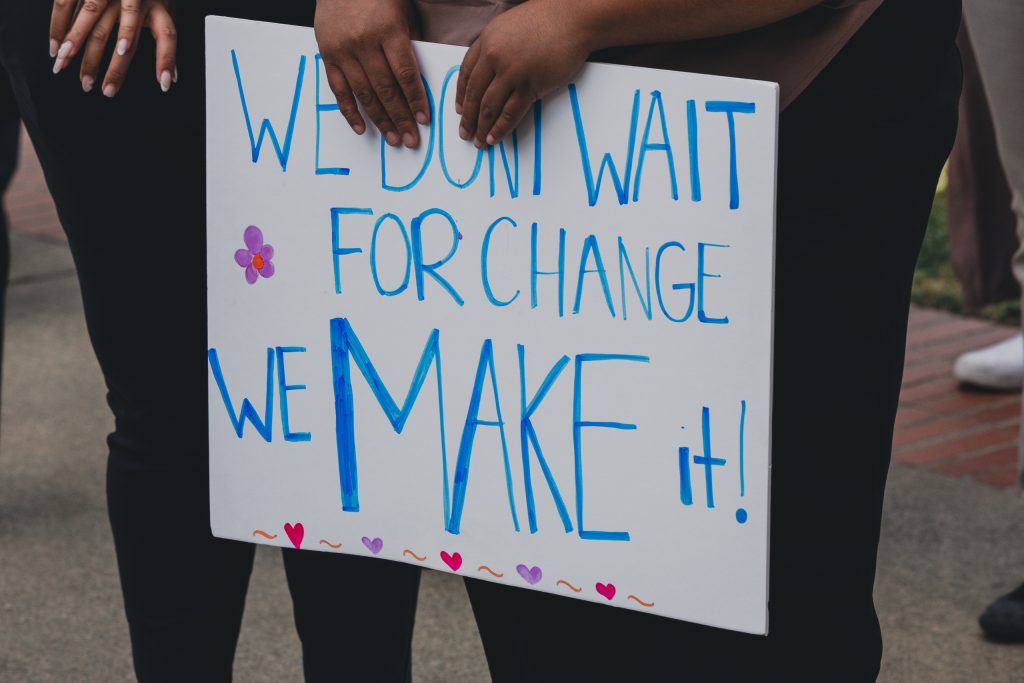 WE DONT WAIT
FOR CHANGE
WE MAKE it!